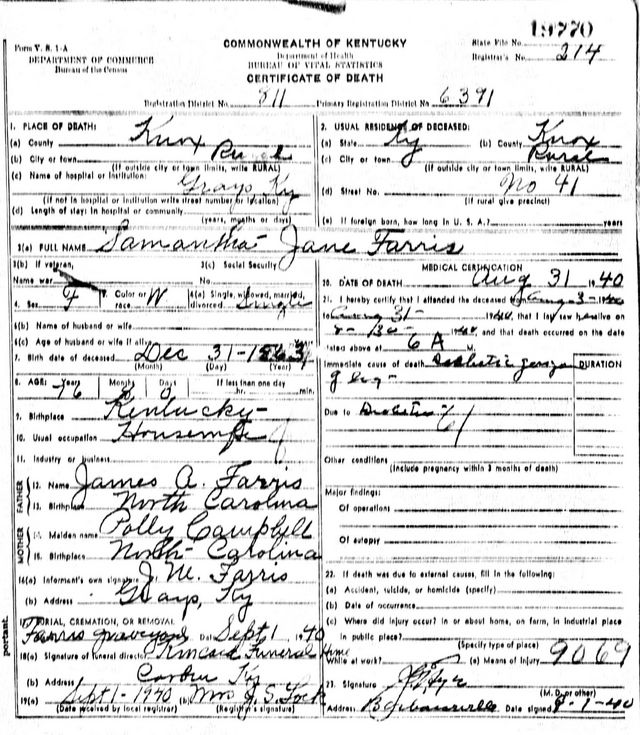 19770
Form V. S. 1-A
DEPARTMENT OF COMMERCE
Bureau of the Census
COMMONWEALTH OF KENTUCKY
Department of Health
BUREAU OF VITAL STATISTICS
CERTIFICATE OF DEATH
State File No.
Registrar's No. 214
Registration District No. 811 Primary Registration District No. 6391
1. PLACE OF DEATH:
(a) County Knox
(b) City or town Rural
(If outside city or town limits, write RURAL)
(c) Name of hospital or institution:
Grays Ky
(If not in hospital or institution write street number or location)
(d) Length of stay: In hospital or community
(years, months or days)
2. USUAL RESIDENCE OF DECEASED:
(a) State Ky (b) County Knox
(c) City or town Rural
(If outside city or town limits, write RURAL)
(d) Street No. No 41
(If rural give precinct)
(e) If foreign born, how long in U. S. A.? years
3(a) FULL NAME Samantha Jane Farris
3(b) If veteran,
Name war
3(c) Social Security
No.
4. Sex F 5. Color or race W 6(a) Single, widowed, married, divorced Single
6(b) Name of husband or wife
6(c) Age of husband or wife if alive
7. Birth date of deceased Dec 31-1863
(Month) (Day) (Year)
8. AGE: Years 76 Months 8 Days 0 If less than one day
hr. min.
9. Birthplace Kentucky
10. Usual occupation Housewife
11. Industry or business
FATHER
12. Name James A. Farris
13. Birthplace North Carolina
MOTHER
14. Maiden name Polly Campbell
15. Birthplace North Carolina
16(a) Informant's own signature J. M. Farris
(b) Address Grays, Ky
17. BURIAL, CREMATION, OR REMOVAL
Farris graveyard Date Sept 1 1940
18(a) Signature of funeral director Kincaid Funeral Home
(b) Address Corbin Ky
19(a) Sept 1-1940 (b) Mrs J. S. Lock
(Date received by local registrar) (Registrar's signature)
MEDICAL CERTIFICATION
20. DATE OF DEATH Aug 31 1940
21. I hereby certify that I attended the deceased from Aug-3-1940
to Aug 31- 1940, that I last saw her alive on
8-30- 1940, and that death occurred on the date
stated above at 6 A M.
Immediate cause of death Diabetic
of leg- DURATION
Due to Diabetis 61
Other conditions
(Include pregnancy within 3 months of death)
Major findings:
Of operations
Of autopsy
22. If death was due to external causes, fill in the following:
(a) Accident, suicide, or homicide (specify)
(b) Date of occurrence
(c) Where did injury occur? In or about home, on farm, in industrial place
in public place?
(Specify type of place)
While at work? (e) Means of injury 9069
23. Signature
(M. D. or other)
Address Date signed 9-1-40
portant.